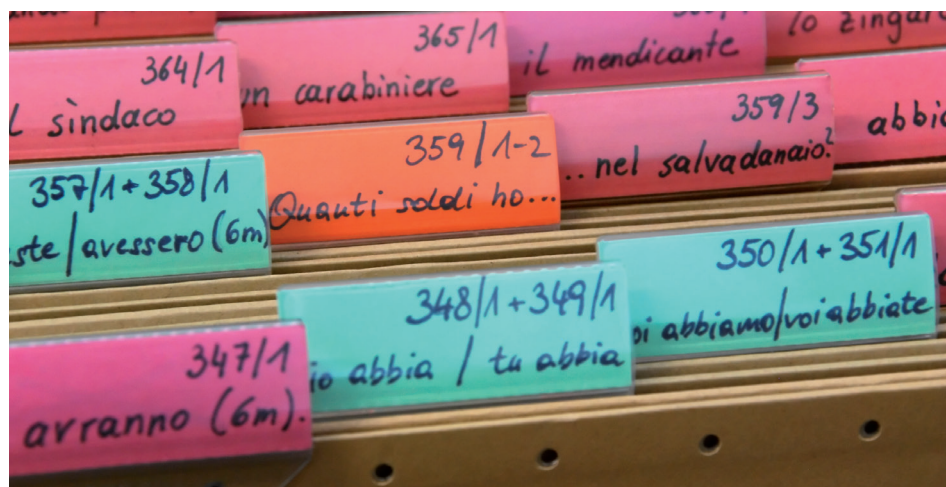 lo zingar
il mendicante
365/1
un carabiniere
364/1
l sindaco
abbi
359/3
...nel salvadanaio?
359/1-2
Quanti soldi ho...
357/1+358/1
ste/avessero (6m)
350/1+351/1
oi abbiamo/voi abbiate
348/1+349/1
io abbia / tu abbia
347/1
avranno (6m).